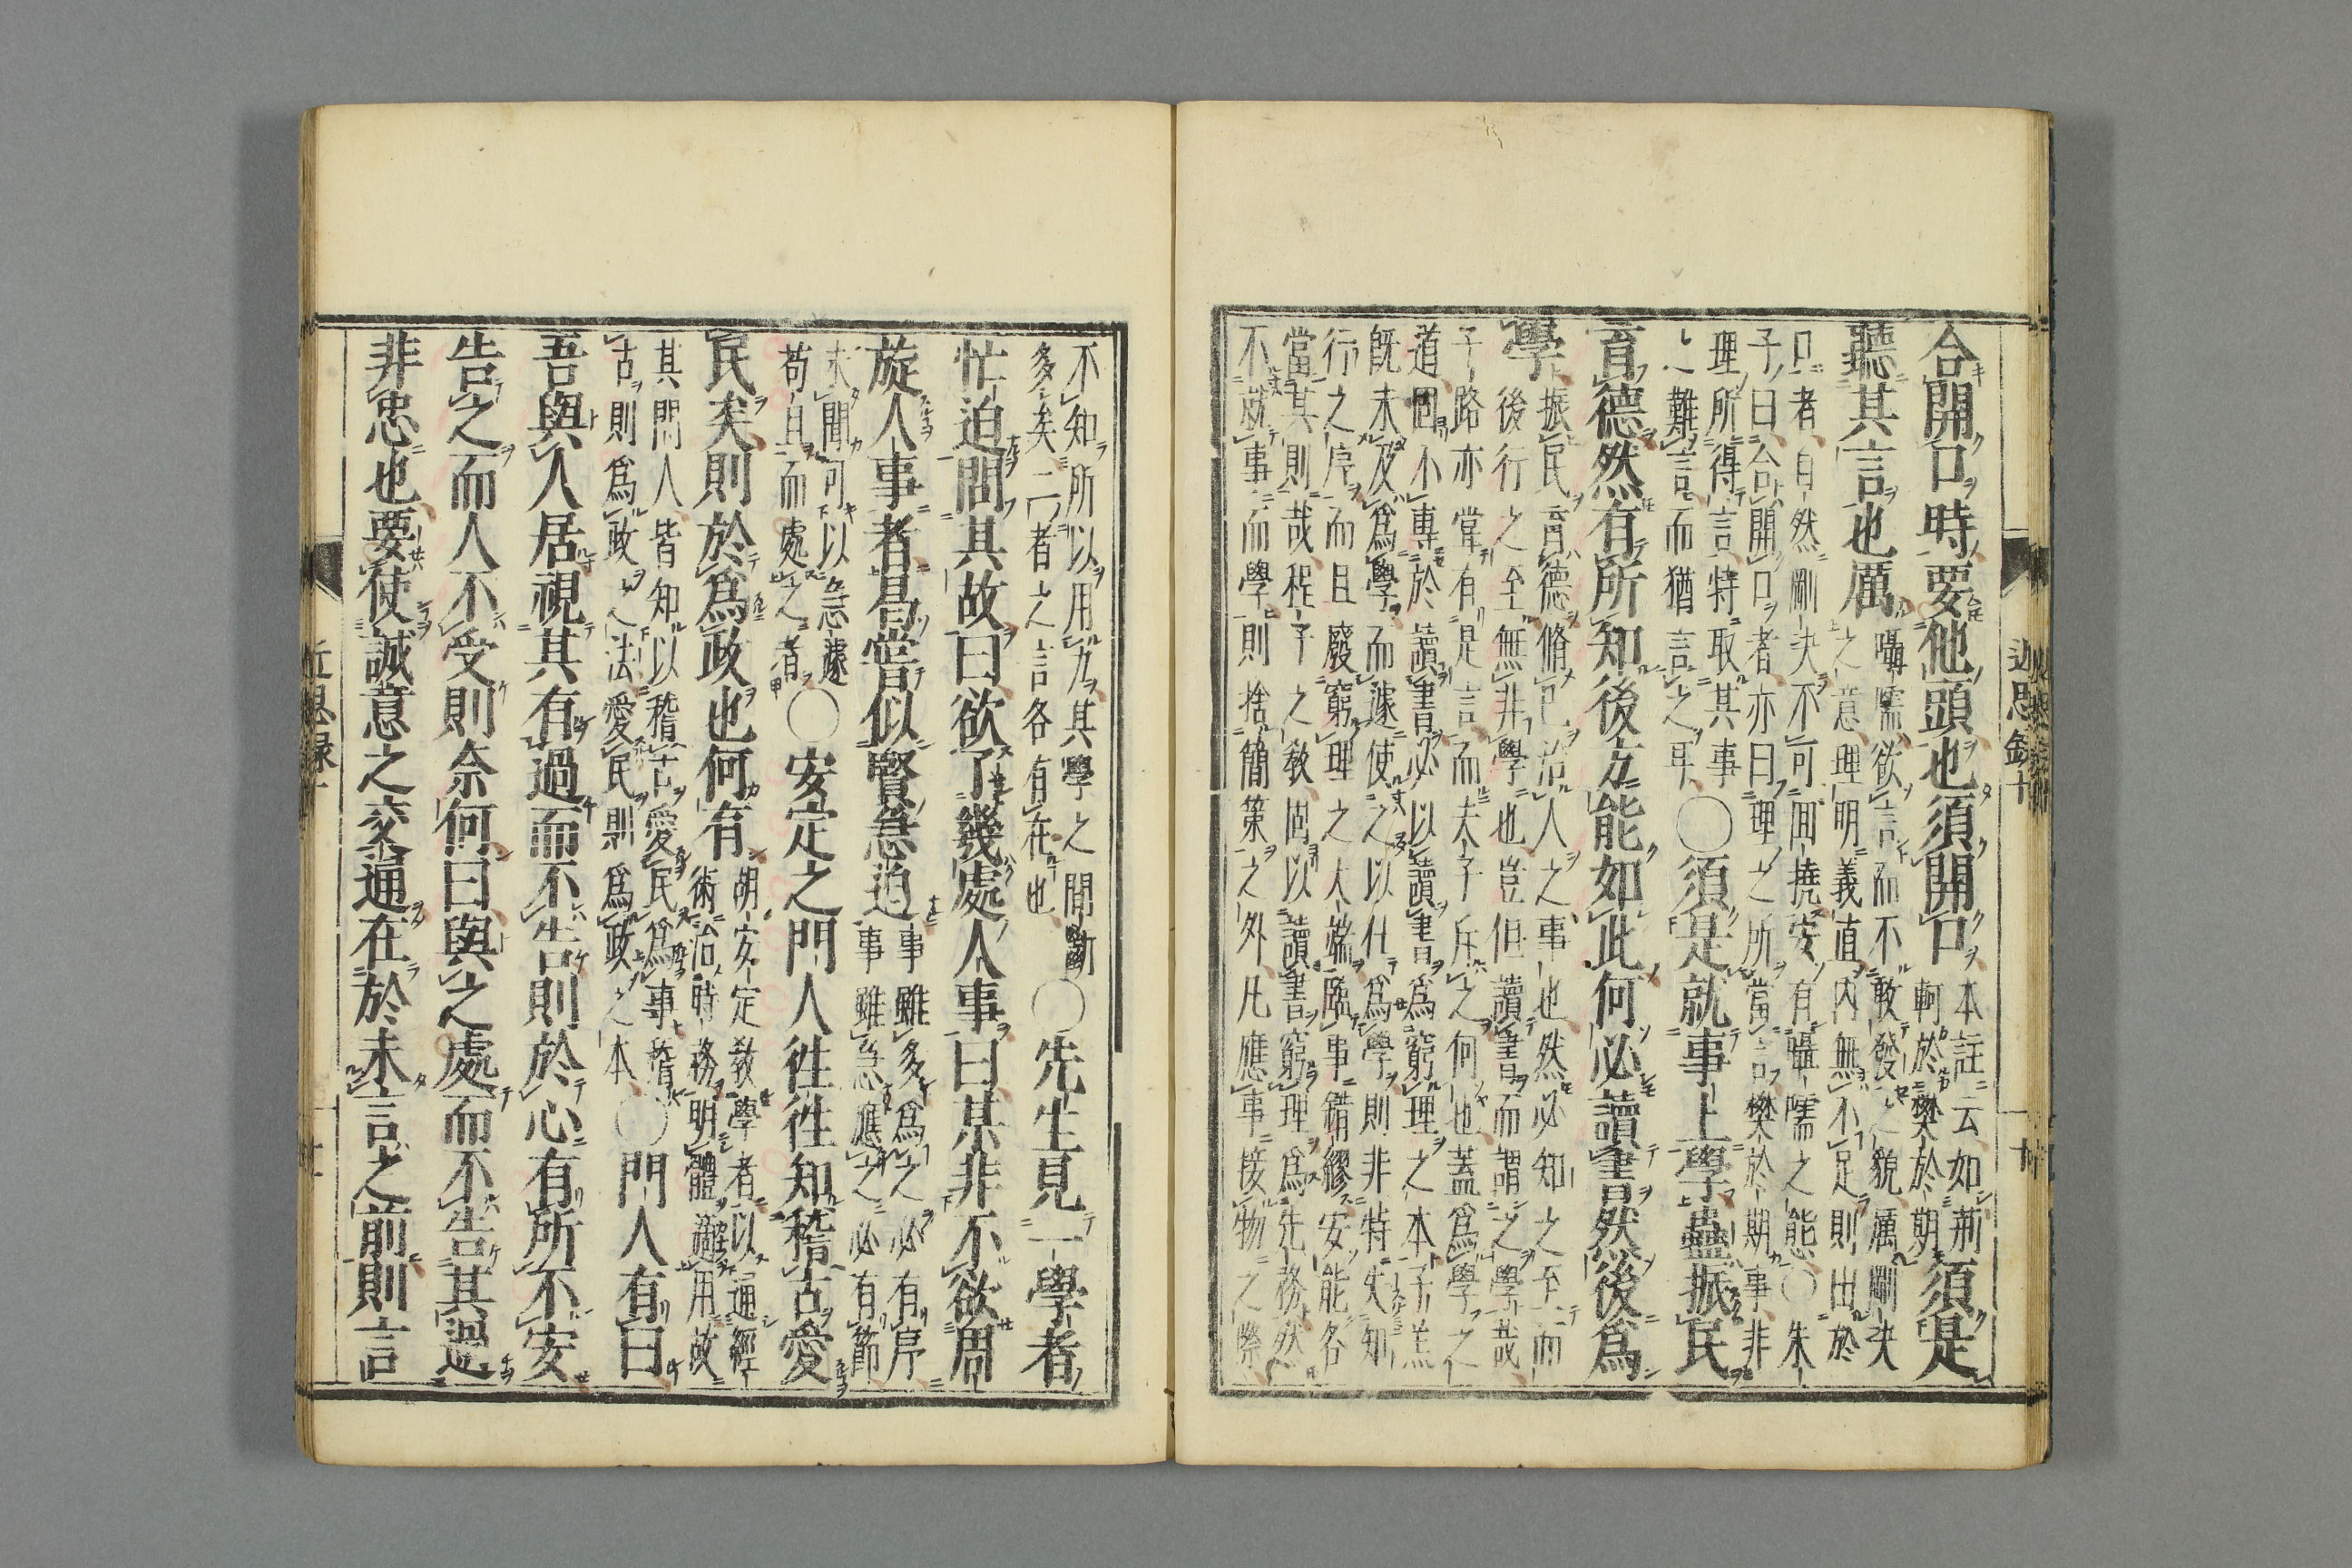 合開口時要他頭也須開口本註云如荊軻於樊於期須是
聽其言也厲囁嚅欲言而不敢發之貌厲剛决之意理明義直内無不足則出於
口者自然剛决不可回撓安有囁嚅之態○朱子曰合開口者亦曰理之所當言樊於期事非
理所得言特取其事之難言而猶言之耳○須是就事上學蠱振民
育德然有所知後方能如此何必讀書然後爲
學振民育德脩己治人之事也然必知之至而後行之至無非學也豈但讀書而謂之學哉
子路亦甞有是言而夫子斥之何也蓋爲學之
道固不專於讀書必以讀書爲窮理之本子羔
既未及爲學而遽使之以仕爲學則非特失知
行之序而且廢窮理之大端臨事錯繆安能各
當其則哉程子之敎固以讀書窮理爲先務然
不就事而學則捨簡策之外凡應事接物之際
近思錄十
不知所以用力其學之間斷多矣二者之言各有在也○先生見一學者
忙迫問其故曰欲了幾處人事曰某非不欲周
旋人事者曷甞似賢急迫事雖多爲之必有序事雖急應之必有節
未聞可以急遽苟且而處之者○安定之門人徃徃知稽古愛
民矣則於爲政也何有胡安定敎學者以通經術治時務明體適用故
其門人皆知以稽古愛民爲事稽古則爲政之法愛民則爲政之本○門人有曰
吾與人居視其有過而不告則於心有所不安
告之而人不受則奈何曰與之處而不告其過
非忠也要使誠意之交通在於未言之前則言
近思錄十